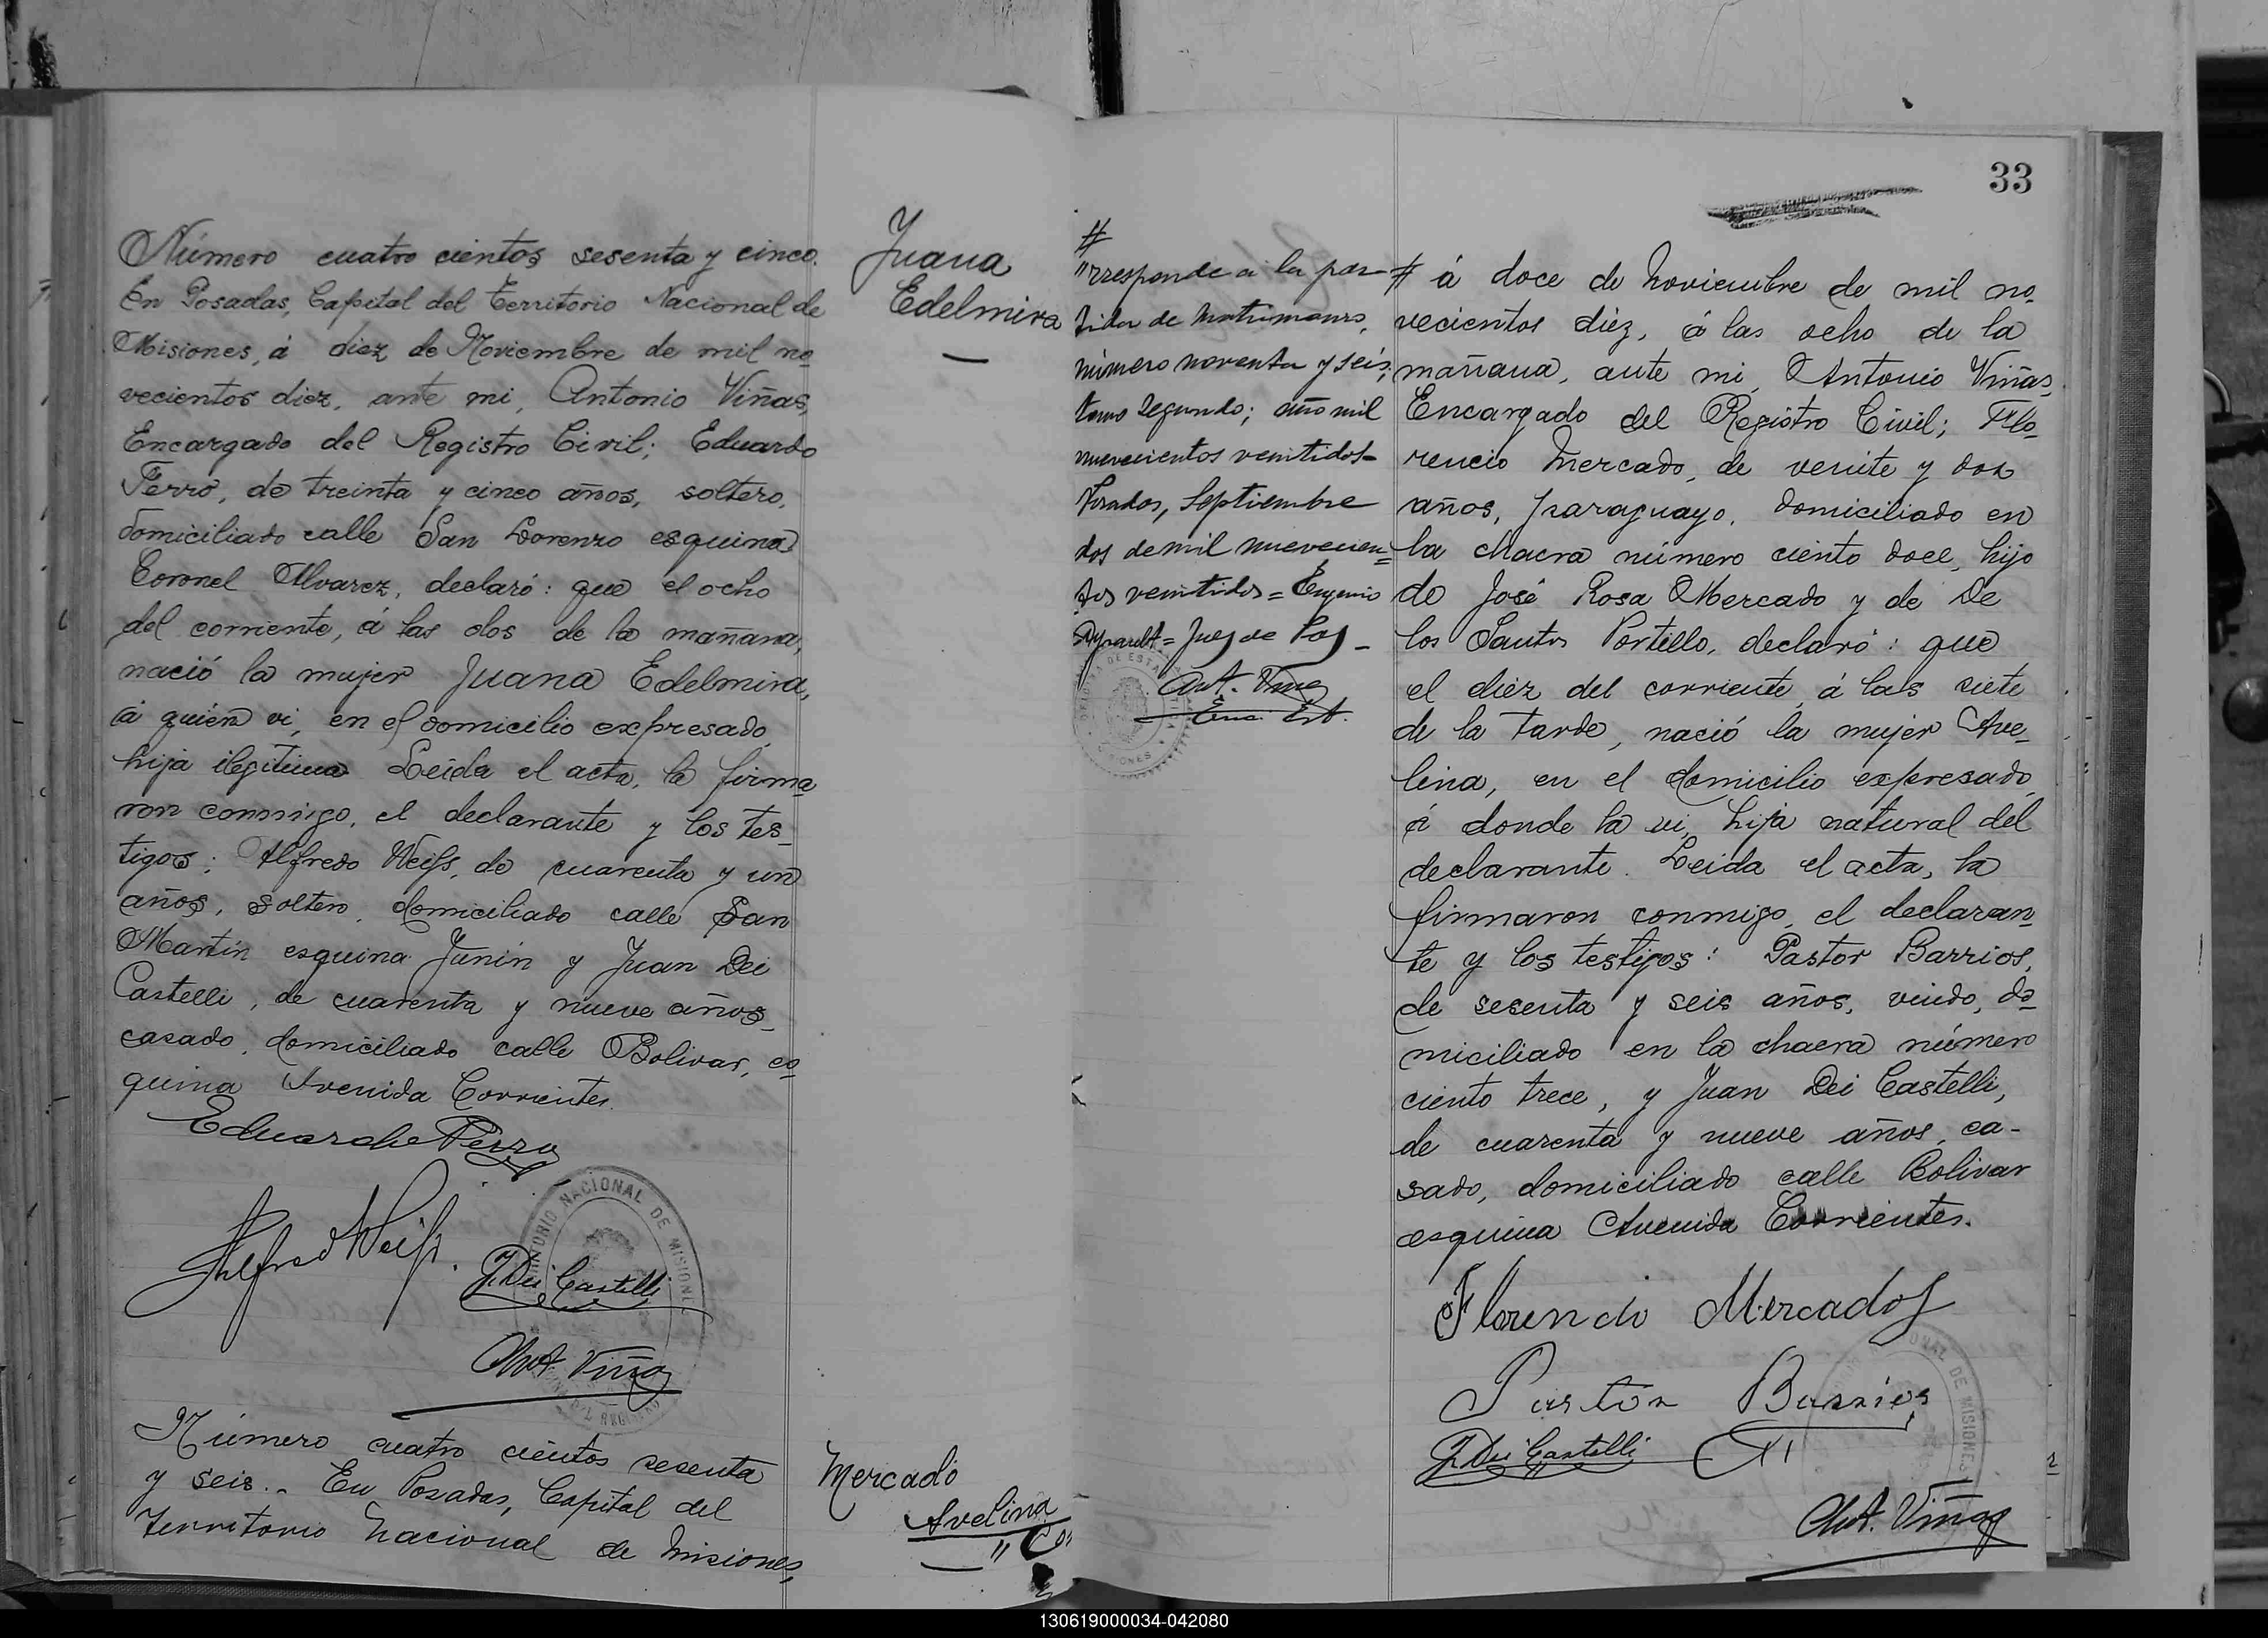 Número cuatro cientos sesenta y cinco.
En Posadas, Capital del Territorio Nacional de
Misiones, á diez de Noviembre de mil no_
vecientos diez, ante mi, Antonio Viñas,
Encargado del Registro Civil; Eduardo
Ferro, de treinta y cinco años, soltero,
domiciliado calle San Lorenzo esquina
Coronel Alvarez, declaró: que el ocho
del corriente, á las dos de la mañana,
nació la mujer Juana Edelmira,
á quién vi, en el domicilio expresado,
hija ilegitima. Leida el acta, la firma_
ron conmigo, el declarante y los tes_
tigos: Alfredo Weiss, de cuarenta y un
años, soltero, domiciliado calle San
Martín esquina Junín y Juan Dei
Castelli, de cuarenta y nueve años,
casado, domiciliado calle Bolivar, es_
quina Avenida Corrientes.
Eduardo Ferro
Alfredo Weiss.
J. Dei Castelli
Ant. Viñas
TERRITORIO NACIONAL DE MISIONES
Número cuatro cientos sesenta
y seis.. En Posadas, Capital del
Territorio Nacional de Misiones,
Juana
Edelmira
Mercado
Avelina
" Co"
33
#
"rresponde a la par-
tida de matrimonio,
número noventa y seis,
tomo Segundo; año mil
nuevecientos veintidos=
Posadas, Septiembre
dos de mil nuevecien=
tos veintidos = Eugenio
= Juez de Paz -
Ant. Viñas
Enc. Est.
# á doce de Noviembre de mil no_
vecientos diéz, á las ocho de la
mañana, ante mi, Antonio Viñas,
Encargado del Registro Civil; Flo_
rencio Mercado, de veinte y dos
años, paraguayo, domiciliado en
la chacra número ciento doce, hijo
de José Rosa Mercado y de De
los Santos Portillo, declaró: que
el diéz del corriente, á las siete
de la tarde, nació la mujer Ave_
lina, en el domicilio expresado,
á donde la vi, hija natural del
declarante. Leida el acta, la
firmaron conmigo, el declaran_
te y los testigos: Pastor Barrios,
de sesenta y seis años, viudo, do_
miciliado en la chacra número
ciento trece, y Juan Dei Castelli,
de cuarenta y nueve años, ca-
sado, domiciliado calle Bolivar
esquina Avenida Corrientes.
Florencio Mercado
Pastor Barrios
J. Dei Castelli
Ant. Viñas
130619000034-042080